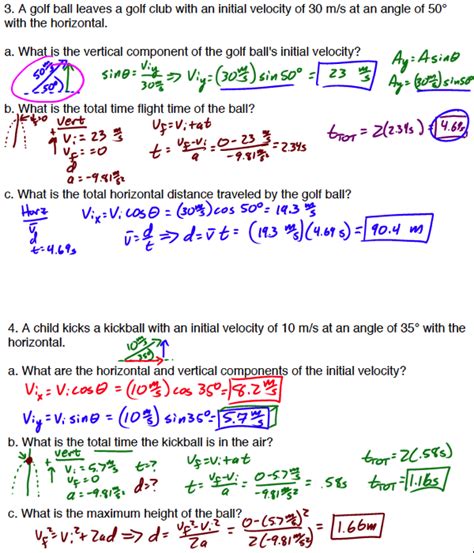 3. A golf ball leaves a golf club with an initial velocity of 30 m/s at an angle of 50°
with the horizontal.
a. What is the vertical component of the golf ball's initial velocity?
50° sinθ = Viy/30 m/s ⇒ Viy = (30 m/s) sin 50° = 23 m/s
Ay = A sinθ
Ay = (30 m/s) sin 50°
b. What is the total time flight time of the ball?
Vert
Vi = 23 m/s
Vf = 0
d
a = -9.81 m/s²
Vf = Vi + at
t = Vf-Vi/a = 0-23 m/s / -9.81 m/s² = 2.34s
tTOT = 2(2.34s) = 4.69s
c. What is the total horizontal distance traveled by the golf ball?
Horz
v̄
d
t = 4.69s
Vix = Vi cosθ = (30 m/s) cos 50° = 19.3 m/s
v̄ = d/t ⇒ d = v̄ t = (19.3 m/s)(4.69 s) = 90.4 m
4. A child kicks a kickball with an initial velocity of 10 m/s at an angle of 35° with the
horizontal.
10 m/s 35°
a. What are the horizontal and vertical components of the initial velocity?
Vix = Vi cosθ = (10 m/s) cos 35° = 8.2 m/s
Viy = Vi sinθ = (10 m/s) sin 35° = 5.7 m/s
b. What is the total time the kickball is in the air?
vert
Vi = 5.7 m/s t=?
Vf = 0
a = -9.81 m/s² d=?
Vf = Vi + at
t = Vf-Vi/a = 0-5.7 m/s / -9.81 m/s² = .58s
tTOT = 2(.58s)
tTOT = 1.16s
c. What is the maximum height of the ball?
Vf² = Vi² + 2ad ⇒ d = Vf²-Vi²/2a = 0-(5.7 m/s)²/2(-9.81 m/s²) = 1.66m